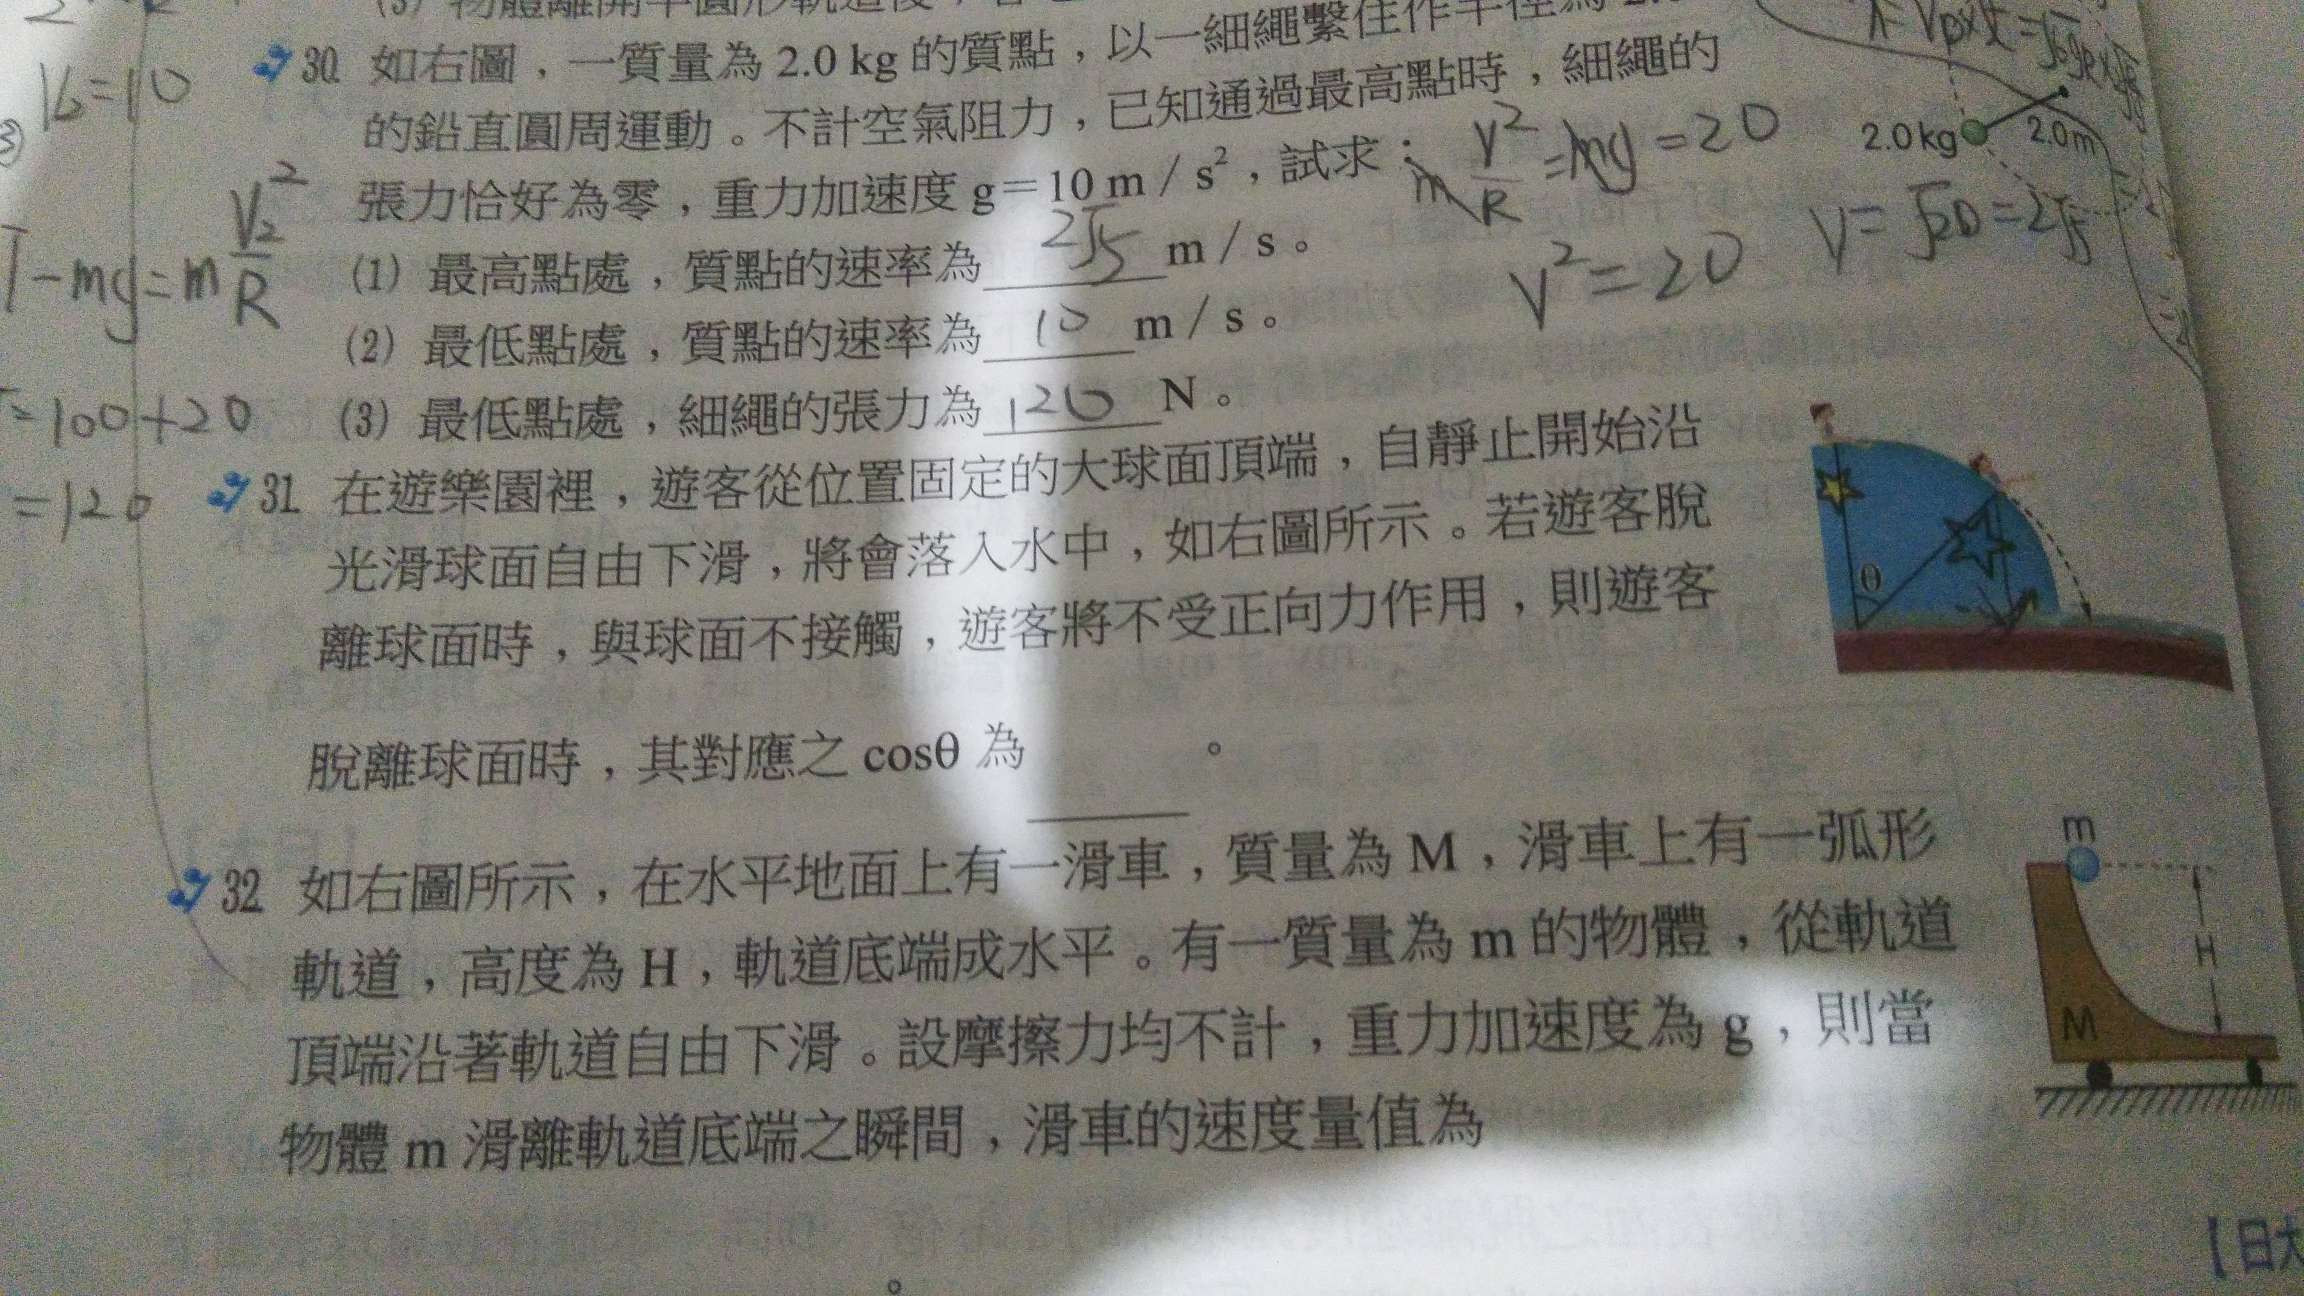 30 如右圖，一質量為 2.0 kg 的質點，以一細繩繫住作半徑為
V₂=10
的鉛直圓周運動。不計空氣阻力，已知通過最高點時，細繩的
張力恰好為零，重力加速度 g=10 m / s²，試求：
m V²/R = mg = 20
2.0 kg 2.0 m
V²=20
V=√20=2√5
T-mg=m V₂²/R
(1) 最高點處，質點的速率為 2√5 m / s。
(2) 最低點處，質點的速率為 10 m / s。
(3) 最低點處，細繩的張力為 120 N。
=100+20
=120
31 在遊樂園裡，遊客從位置固定的大球面頂端，自靜止開始沿
光滑球面自由下滑，將會落入水中，如右圖所示。若遊客脫
離球面時，與球面不接觸，遊客將不受正向力作用，則遊客
脫離球面時，其對應之 cosθ 為 。
θ
32 如右圖所示，在水平地面上有一滑車，質量為 M，滑車上有一弧形
軌道，高度為 H，軌道底端成水平。有一質量為 m 的物體，從軌道
頂端沿著軌道自由下滑。設摩擦力均不計，重力加速度為 g，則當
物體 m 滑離軌道底端之瞬間，滑車的速度量值為
。
m
H
M
【日大